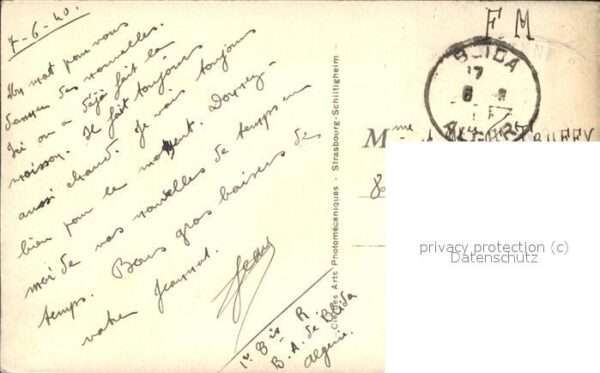 7-6-40.
Un mot pour vous
donner des nouvelles.
Ici on a déjà fait la
moisson. Il fait toujours
aussi chaud. Je vais toujours
bien pour le moment. Donnez-
moi de vos nouvelles de temps en
temps. Bons gros baisers de
votre Jeannot.
Jean
1er Bis R
B.A. de Blida
Algérie.
Clichés Arts Photomécaniques - Strasbourg-Schiltigheim
F M
BLIDA
17
6
ALGER
Mme
8
privacy protection (c)
Datenschutz